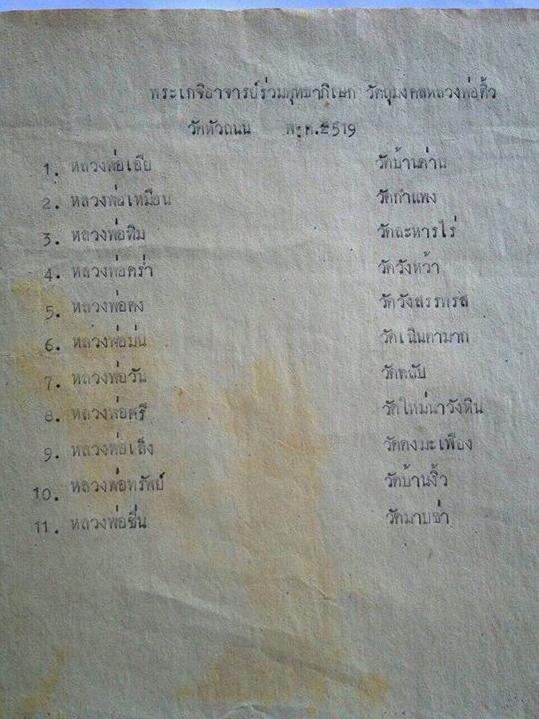 พระเกจิอาจารย์ร่วมพุทธาภิเษก วัตถุมงคลหลวงพ่อคิ้ว
วัดหัวถนน พ.ศ.2519
1. หลวงพ่อเอีย วัดบ้านด่าน
2. หลวงพ่อเหมือน วัดกำแพง
3. หลวงพ่อทิม วัดละหารไร่
4. หลวงพ่อคร่ำ วัดวังหว้า
5. หลวงพ่อคง วัดวังสรรพรส
6. หลวงพ่อม่น วัดเนินตามาก
7. หลวงพ่อวัน
8. หลวงพ่อศรี วัดใหม่นาวังหิน
9. หลวงพ่อเส็ง วัดดงมะเฟือง
10. หลวงพ่อทรัพย์ วัดบ้านงิ้ว
11. หลวงพ่อชื่น วัดมาบข่า